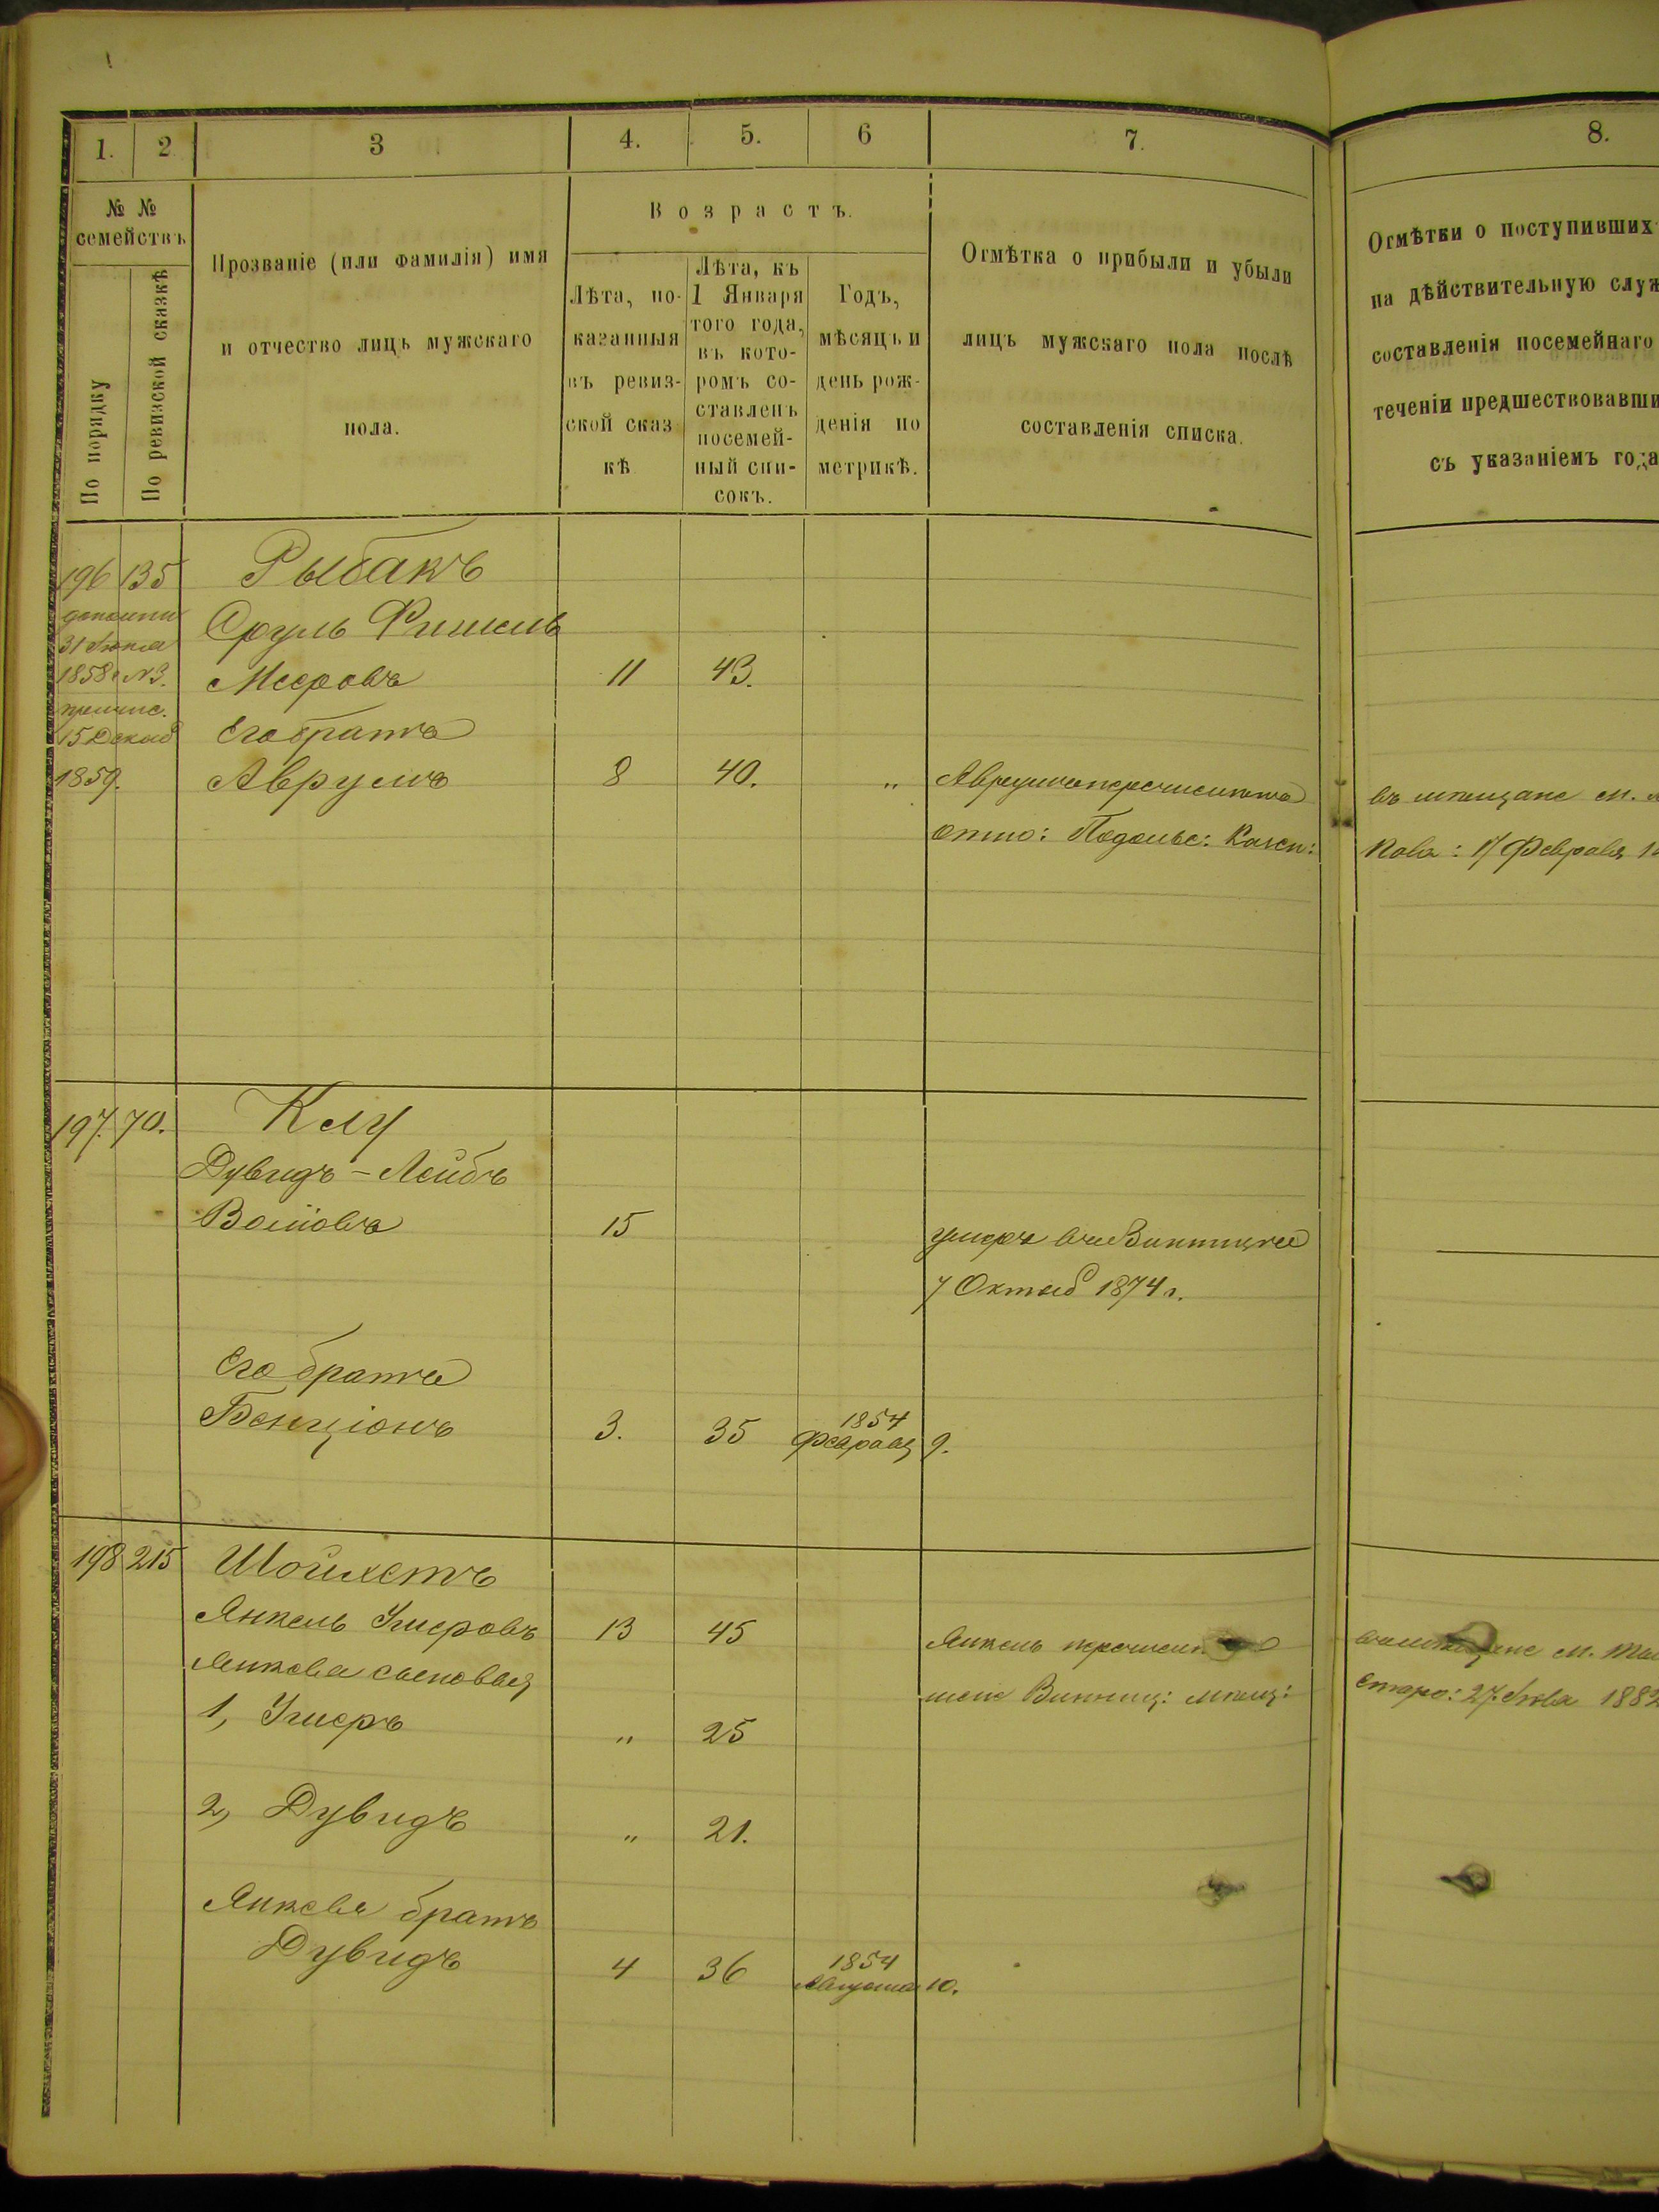 1. 2 3 4. 5. 6 7. 8.
№ №
семействъ
По порядку
По ревизской сказкѣ
Прозваніе (или фамилія) имя
и отчество лицъ мужскаго
пола.
Возрастъ.
Лѣта, по-
казанныя
въ ревиз-
ской сказ
кѣ
Лѣта, къ
1 Января
того года,
въ кото-
ромъ со-
ставленъ
посемей-
ный спи-
сокъ.
Годъ,
мѣсяцъ и
день рож-
денія по
метрикѣ.
Отмѣтка о прибыли и убыли
лицъ мужскаго пола послѣ
составленія списка.
Отмѣтки о поступивших
на дѣйствительную служ
составленія посемейнаго
теченіи предшествовавши
съ указаніемъ года
196 135 Рыбакъ
Сруль Фишель
31
1858 №3.
Мееровъ 11 43.
15 Декаб
Его братъ
1859. Аврумъ 8 40. „ Аврумъ перечисленъ въ мѣщане м.
отно: Подольс: Казен: Пала: 17 Февраля 1
197. 70. Клу
Дувидъ-Лейбъ
Волковъ 15 умеръ въ Винницѣ
7 Октяб 1874 г.
Его братъ
Бенціонъ 3. 35 1854
Февраля 9.
198 215 Шойхетъ
Янкель Ушеровъ 13 45 Янкель перечислен м.
Янкеля сыновья Винниц: мѣщ: старо: 27 1882
1, Ушеръ „ 25
2, Дувидъ „ 21.
Янкеля братъ
Дувидъ 4 36 1854
Августа 10.